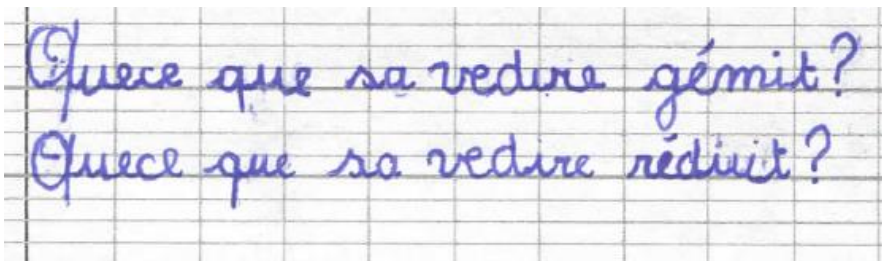 Quece que sa vedire gémit?
Quece que sa vedire réduit?